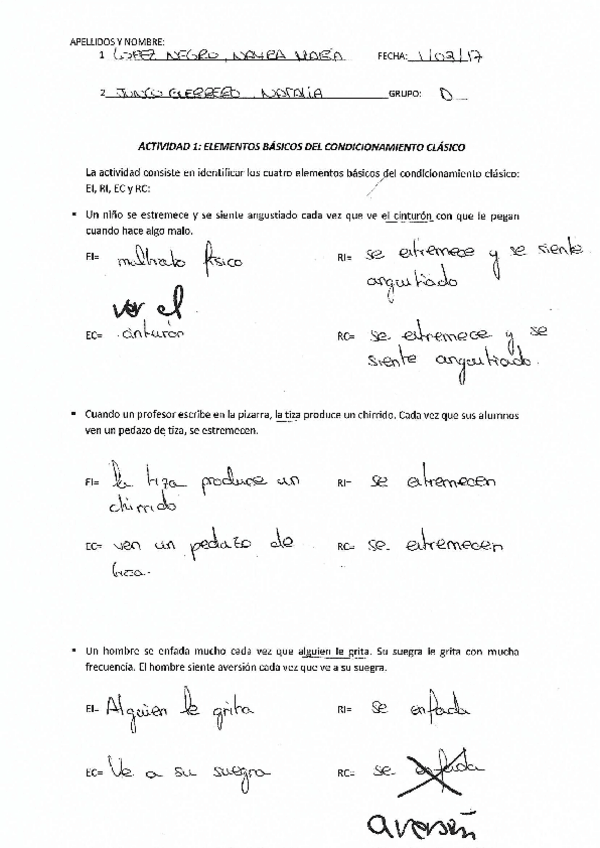 APELLIDOS Y NOMBRE:
1 LOPEZ NEGRO, NAYRA MARÍA FECHA: 1/03/17
2 GUERRERO, NATALIA GRUPO: D
ACTIVIDAD 1: ELEMENTOS BÁSICOS DEL CONDICIONAMIENTO CLÁSICO
La actividad consiste en identificar los cuatro elementos básicos del condicionamiento clásico:
EI, RI, EC y RC:
▪ Un niño se estremece y se siente angustiado cada vez que ve el cinturón con que le pegan
cuando hace algo malo.
EI= maltrato físico RI= se extremece y se siente
angustiado
ver el
EC= cinturón RC= se extremece y se
siente angustiado.
▪ Cuando un profesor escribe en la pizarra, la tiza produce un chirrido. Cada vez que sus alumnos
ven un pedazo de tiza, se estremecen.
EI= la tiza produce un RI= se extremecen
chirrido
EC= ven un pedazo de RC= se extremecen
tiza.
▪ Un hombre se enfada mucho cada vez que alguien le grita. Su suegra le grita con mucha
frecuencia. El hombre siente aversión cada vez que ve a su suegra.
EI= Alguien le grita RI= se enfada
EC= Ve a su suegra RC= se enfada
aversión